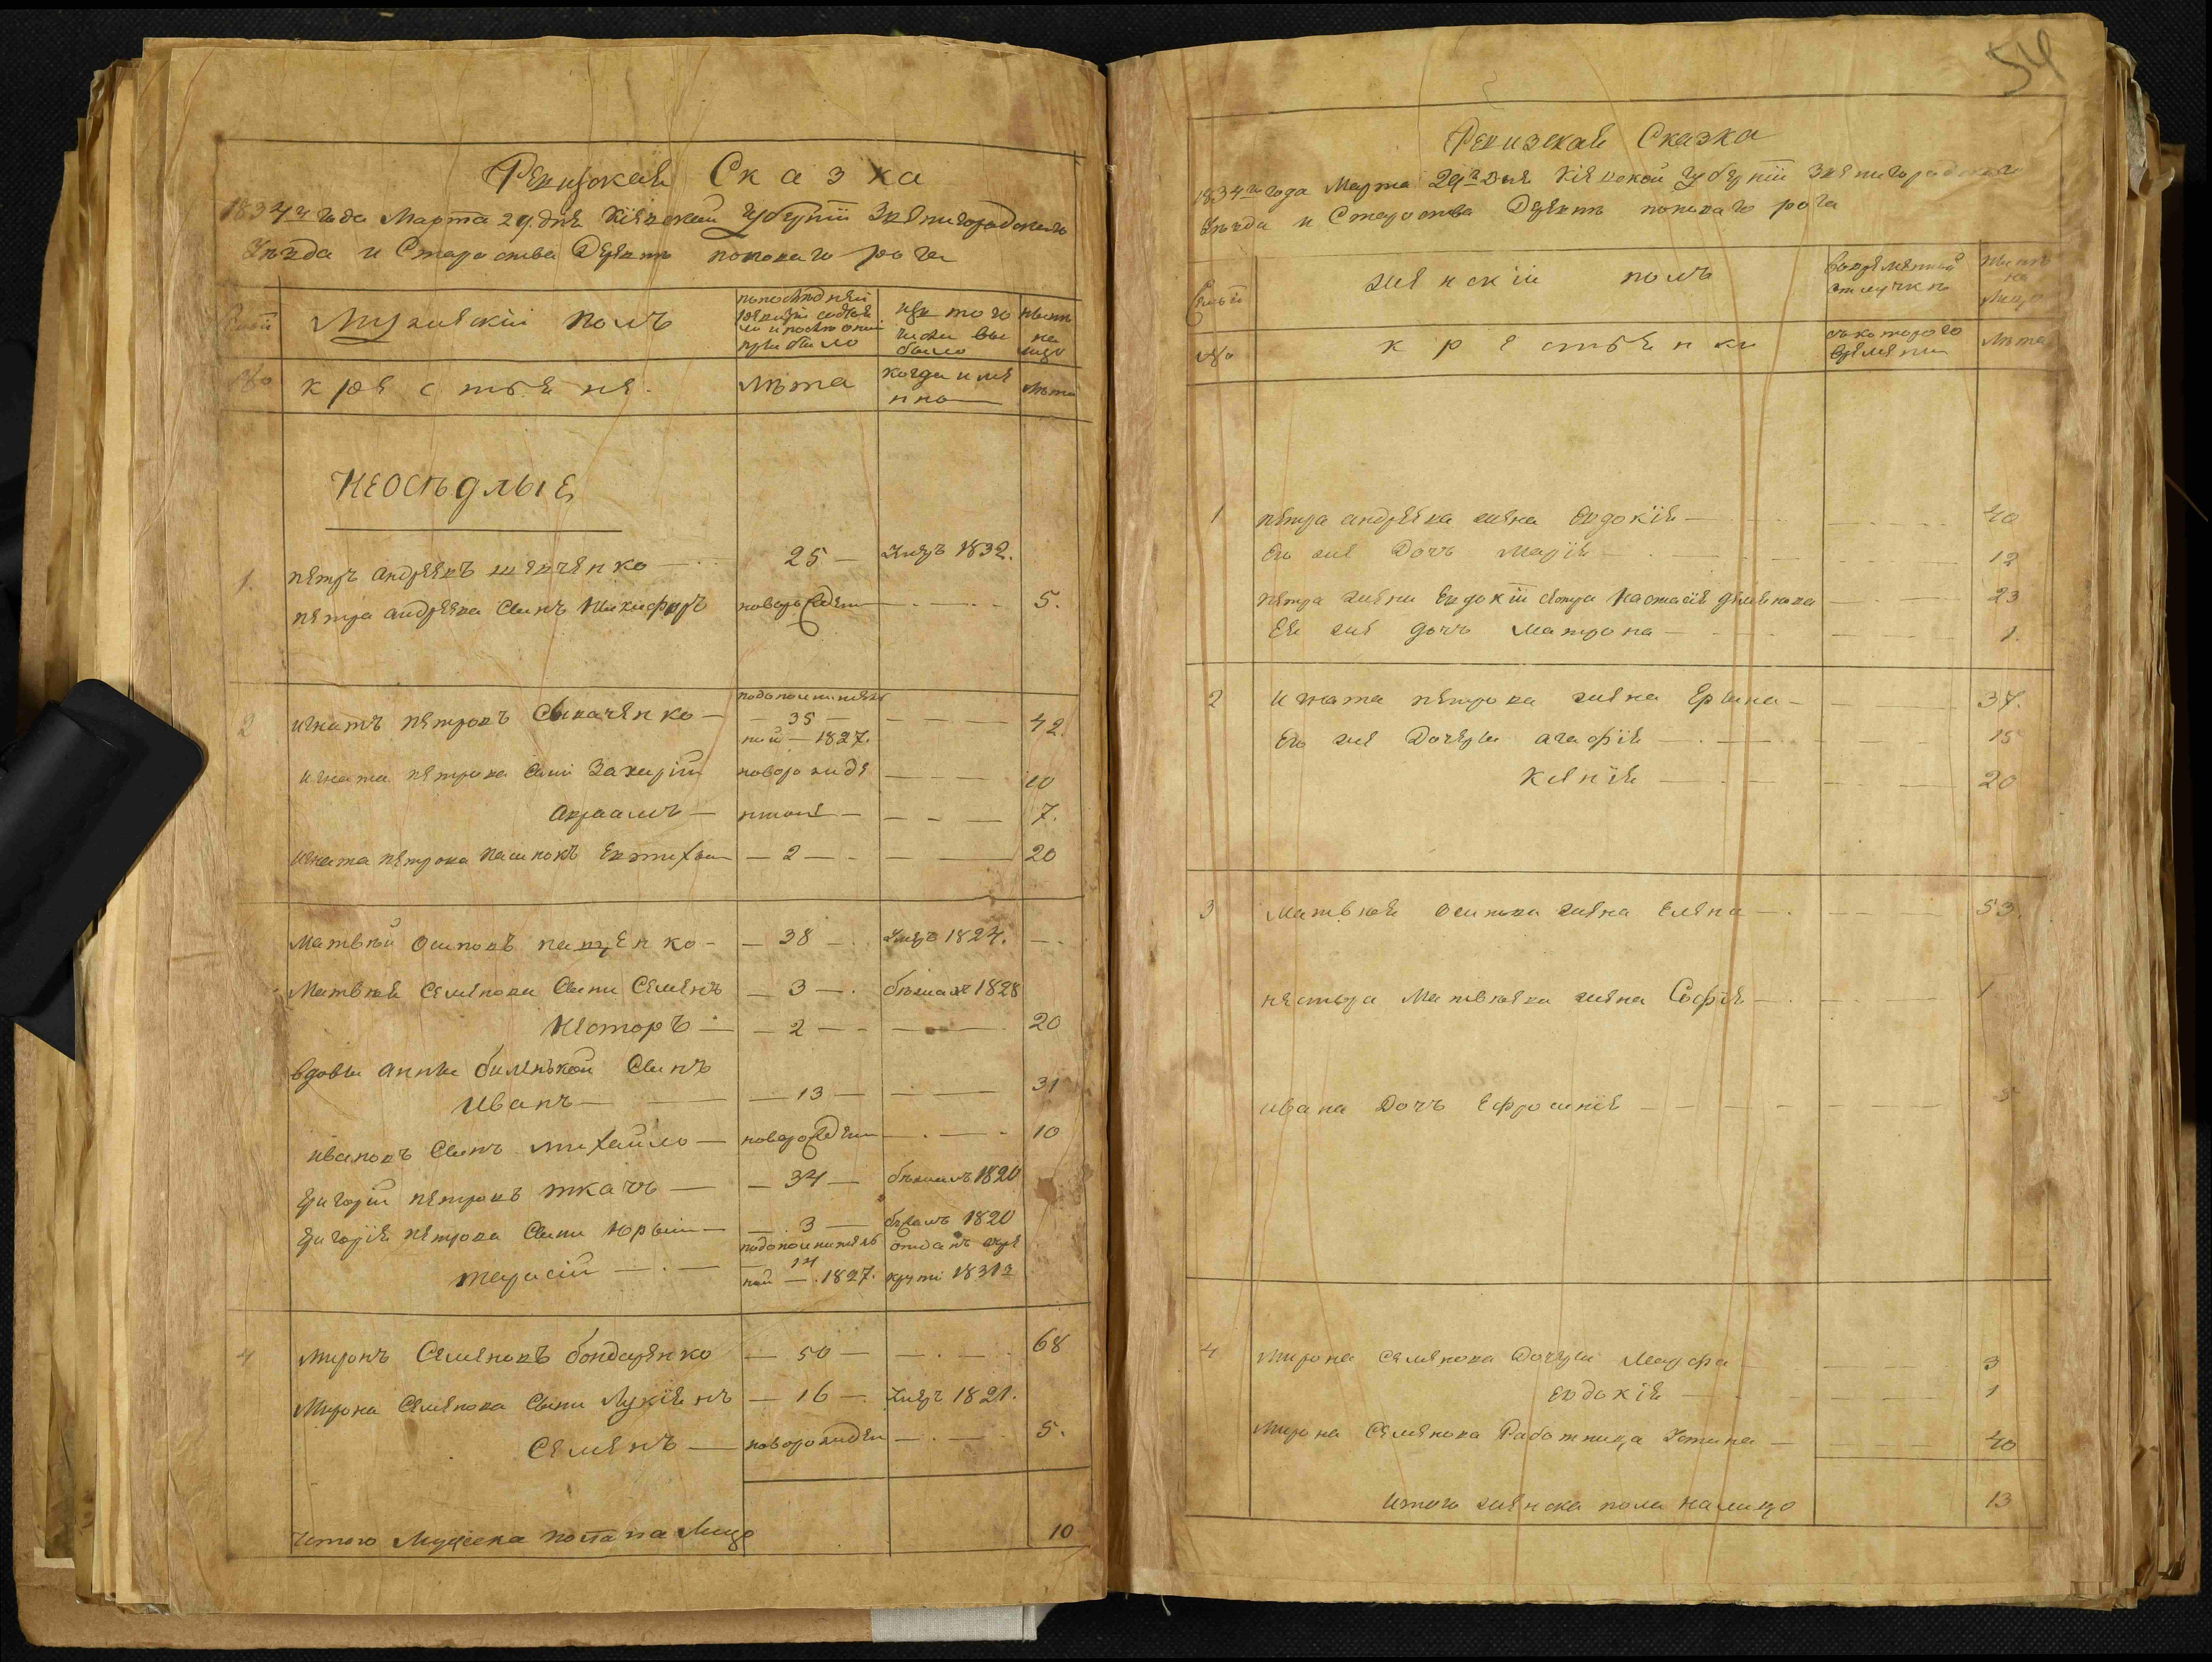 Ревизская Сказка
1834го года Марта 29. дня Кіевской Губерніи Звенигородскаго
Уѣзда и Староства Деревни поповаго рога
Мужескій полъ
по последней ревизіи состоя ло и после оной прибыло
изъ того числа вы было
нынѣ на лицо
№
крестьяне.
Лѣта
когда име нно
Лѣта
Неосѣдлые
1. петръ андреевъ шевченко — 25 — Умеръ 1832.
петра андреева Сынъ Никифоръ новорожденъ — 5.
2 игнатъ петровъ Сыкаченко — подополнитель ной 35 — 1827. — 42.
игната петрова Сыны Захарій новорожде — 10
авраамъ — нные — 7.
игната петрова пасынокъ Евтихій — 2 — 20
Матвѣй осиповъ пащенко — 38 — Умеръ 1824. —
Матвѣя Семенова Сыны Семенъ — 3 — бѣжалъ 1828
Несторъ — 2 — 20
вдовы анны Сынъ
Иванъ — 13 — 31
ивановъ Сынъ михайло — новорожденъ — 10
григорій петровъ ткачъ — 34 — бѣжалъ 1820
григорія петрова Сыны Юрый — 3 — бѣжалъ 1820
тарасій — подополнитель ной 14 — 1827. отданъ въре круты 1831г
4 миронъ Семеновъ бондаренко — 50 — 68
Мирона Семенова Сыны Лукіянъ — 16 — Умеръ 1821.
Семенъ — новорожденъ — 5.
Итого Мужеска пола на Лицо 10
54
Ревизская Сказка
1834го года Марта 29го Дня Кіевской Губерніи Звенигородскаго
Уѣзда и Староства Деревни поповаго рога
Семьи
женскій полъ
Вовременной отлучкѣ
Нынѣ на Лицо
№
крестьянки
съкотораго времени
Лѣта
1 петра андреева жена Евдокія — 40
Его же Дочь Марія — 12
петра жены Евдокіи сестра Настасія — 23
Ее же дочь Матрона — 1.
2 Игната петрова жена Ерына — 37.
Его же Дочеры агафія — 15
Ксенія — 20
3 Матвѣя осипова жена Елена — 53.
нестора Матвѣева жена Софія — 1
ивана Дочь Ефросинія —
4 Мирона семенова Дочеры Марфа — 3
евдокія — 1
Мирона Семенова Работница Устина — 40
Итого женска пола налицо 13